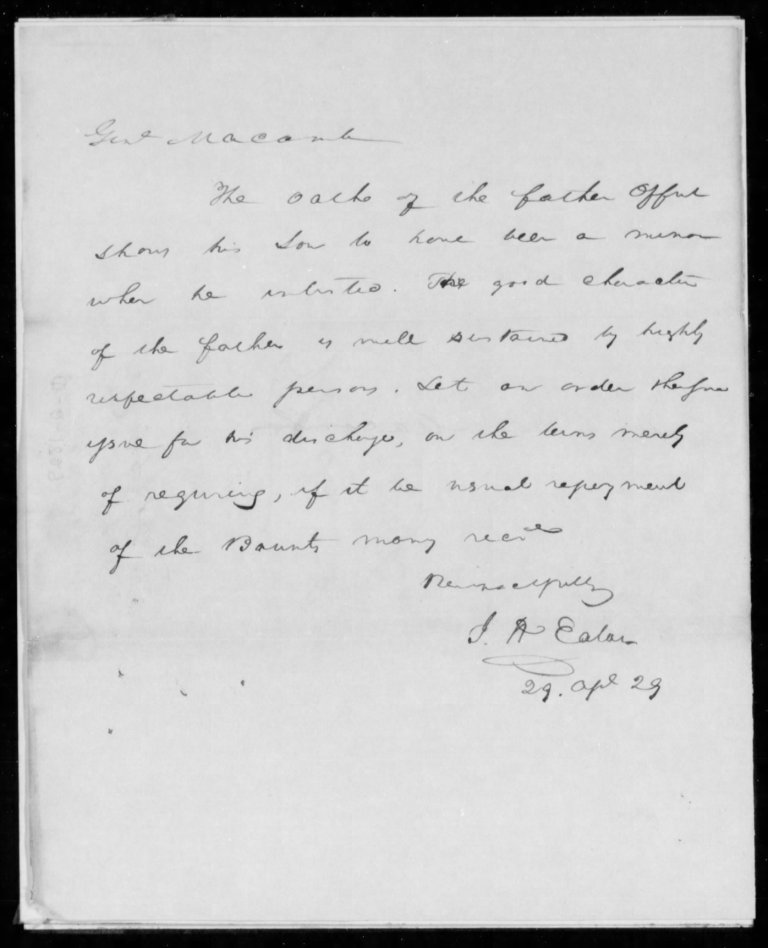 Genl Macomb
The oath of the father Offut
shows his Son to have been a minor
when he enlisted. The good character
of the father is well sustained by highly
respectable persons. Let an order therefore
issue for his discharge, on the terms merely
of requiring, if it be usual repayment
of the Bounty mony recd
Respectfully
J. H Eaton
29. Apl 29